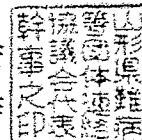 山形県難病
等団体連絡
協議会代表
幹事之印